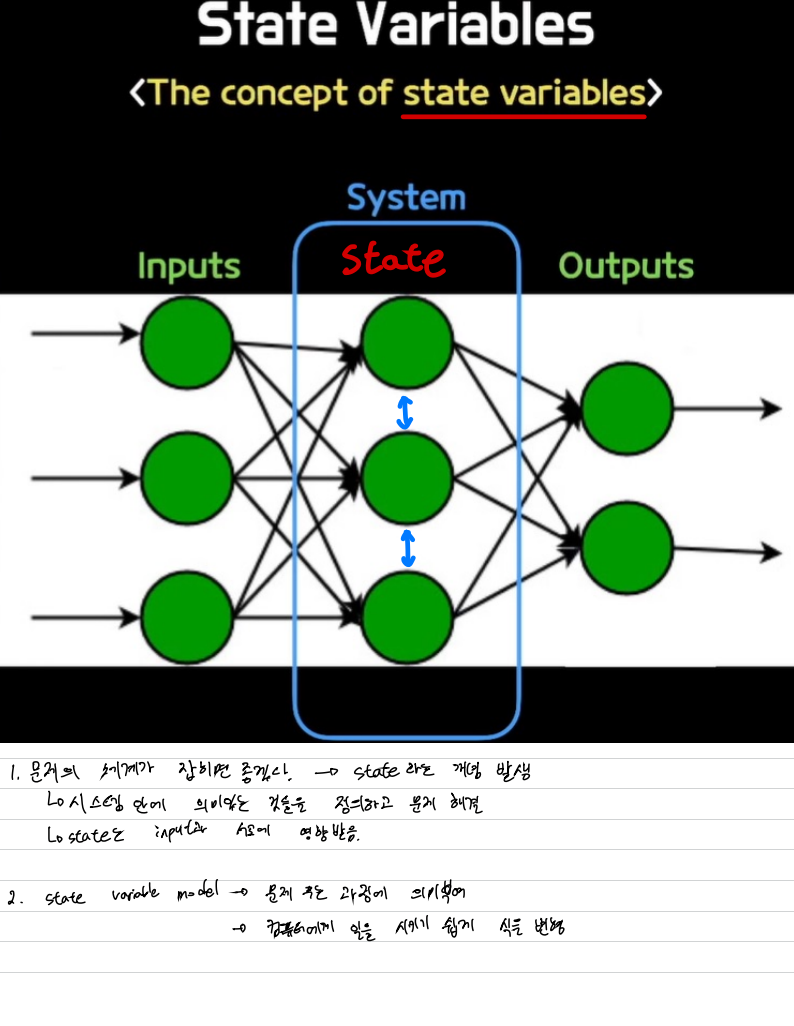 State Variables
<The concept of state variables>
System
Inputs
State
Outputs
1. 문제의 체계가 잡히면 좋겠다. → state 라는 개념 발생
시스템 안에 의미있는 것들을 정의하고 문제 해결
state는 input과 서로에 영향받음.
2. state variable model → 문제 푸는 과정에 의미부여
→ 컴퓨터에게 일을 시키기 쉽게 식을 변형